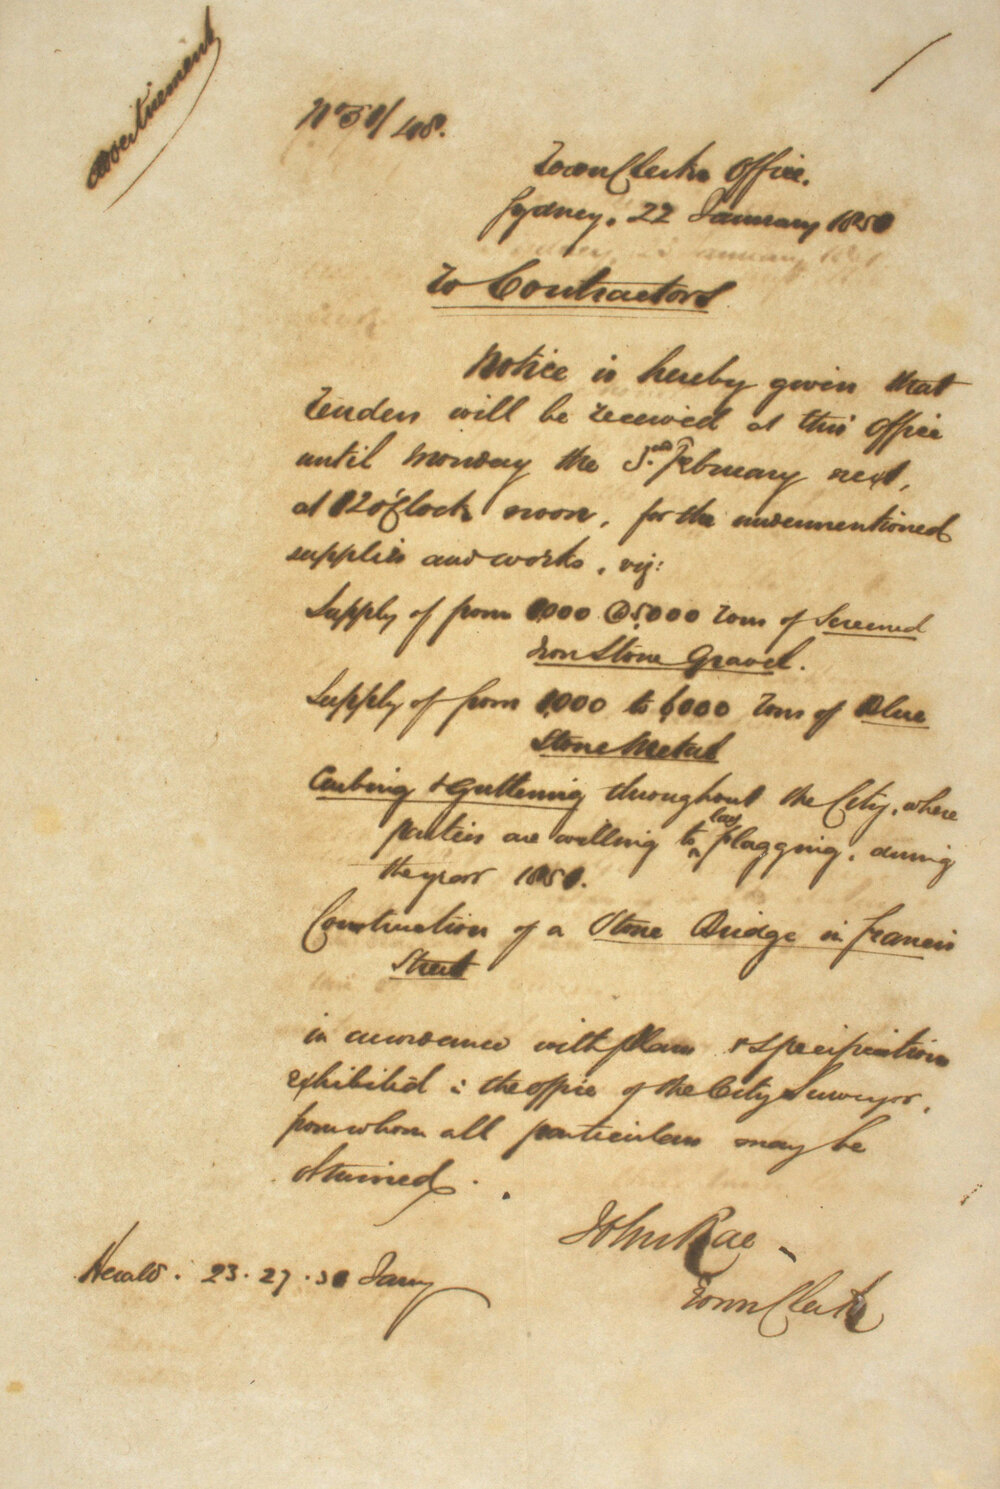 Advertisement
No 51/
Town Clerk's Office.
Sydney. 22 January 1851
To Contractors
Notice is hereby given that
Tenders will be received at this Office
until Monday the 3rd February next,
at 12 o'Clock noon, for the undermentioned
supplies and works, viz:
Supply of from 1,000 @ 5,000 Tons of Screened
Iron Stone Gravel.
Supply of from 1,000 to 6,000 Tons of Blue
Stone Metal
Curbing & Guttering throughout the City, where
parties are willing to lay flagging, during
the year 1851.
Construction of a Stone Bridge in Francis
Street
in accordance with plan & specification
exhibited in the office of the City Surveyor,
from whom all particulars may be
obtained.
John Rae
Town Clerk
Herald. 23. 27. 31 Jany